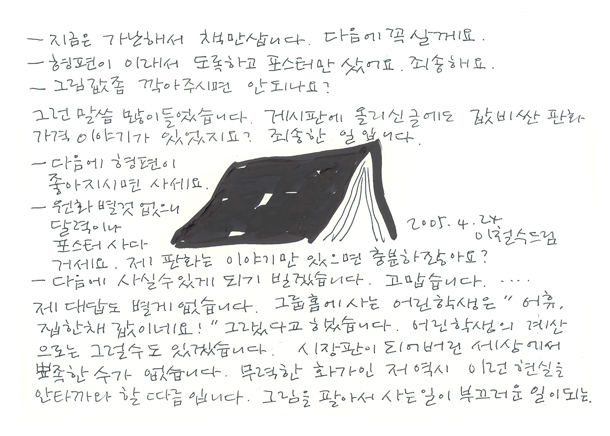 - 지금은 가난해서 책만삽니다. 다음에 꼭 살게요.
- 형편이 이래서 도록하고 포스터만 샀어요. 죄송해요.
- 그림값좀 깎아주시면 안되나요?
그런 말씀 많이들었습니다. 게시판에 올리신글에도 값비싼 판화
가격 이야기가 있었지요? 죄송한 일입니다.
- 다음에 형편이
좋아지시면 사세요.
- 원화 별것 없으니
달력이나
포스터 사다
거세요. 제 판화는 이야기만 있으면 충분하잖아요?
2005. 4. 24
이철수드림
- 다음에 사실수있게 되기 빌겠습니다. 고맙습니다. ....
제 대답도 별게 없습니다. 그룹홈에사는 어린학생은 "어휴,
집한채 값이네요!" 그랬다고 했습니다. 어린학생의 계산
으로는 그럴수도 있겠습니다. 시장판이 되어버린 세상에서
뾰족한 수가 없습니다. 무력한 화가인 저 역시 이런 현실을
안타까와 할 따름입니다. 그림을 팔아서 사는일이 부끄러운 일이되는